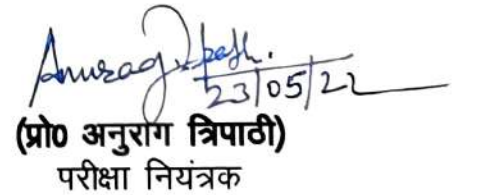 Anurag Tripathi.
23/05/22
(प्रो0 अनुराग त्रिपाठी)
परीक्षा नियंत्रक